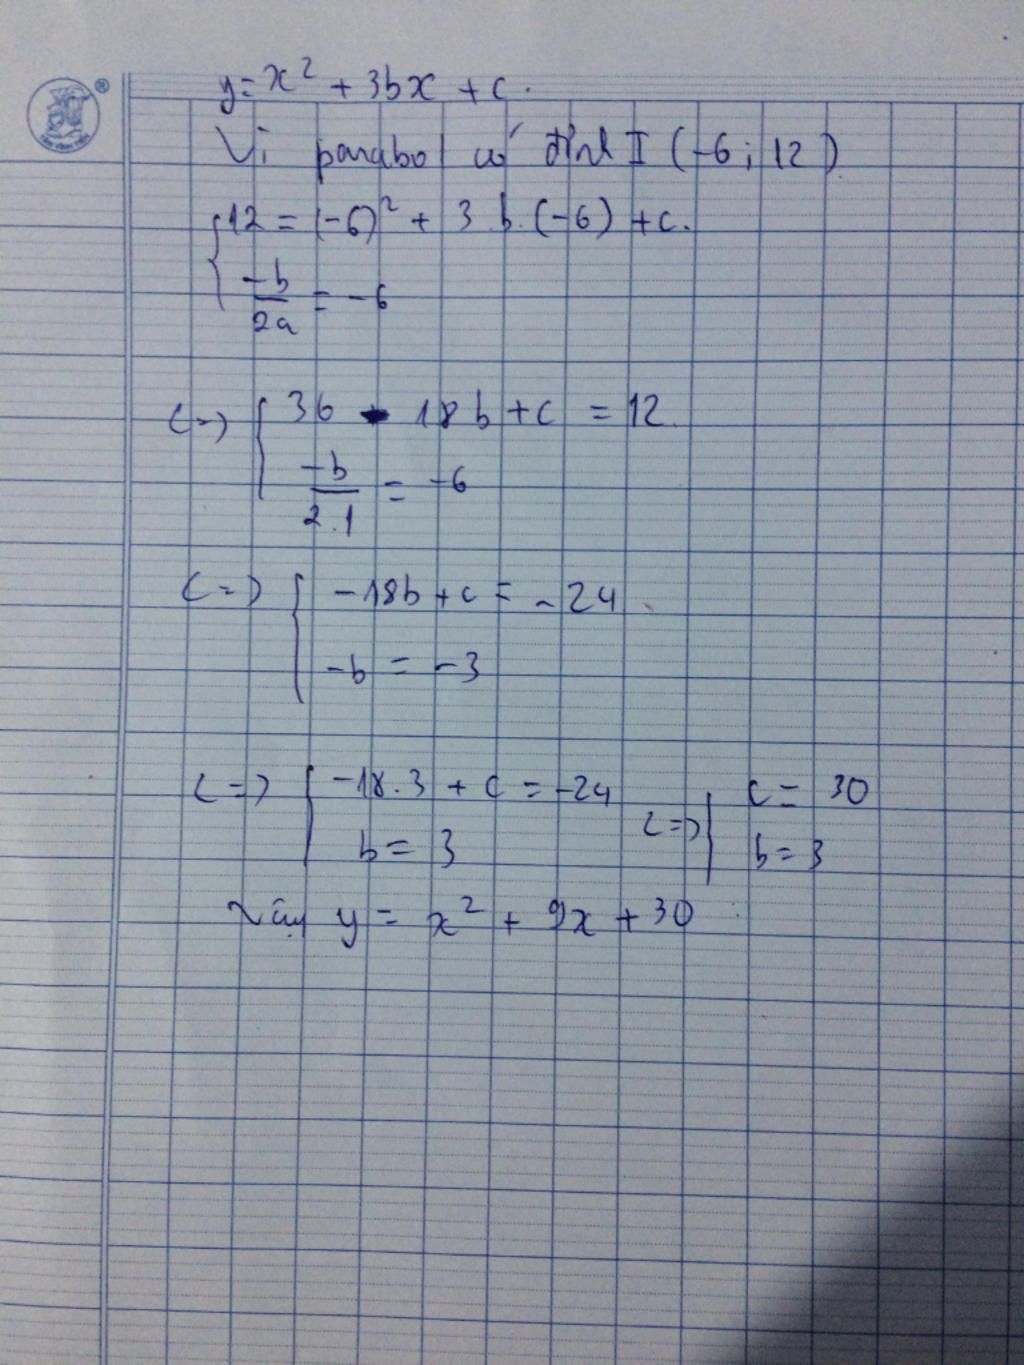 y = x² + 3bx + c.
Vì parabol có đỉnh I (-6; 12)
{ 12 = (-6)² + 3.b.(-6) + c.
-b/2a = -6
(=) { 36 - 18b + c = 12.
-b/2.1 = -6
(=) { -18b + c = -24
-b = -3
(=) { -18.3 + c = -24
b = 3
(=) { c = 30
b = 3
Vậy y = x² + 9x + 30